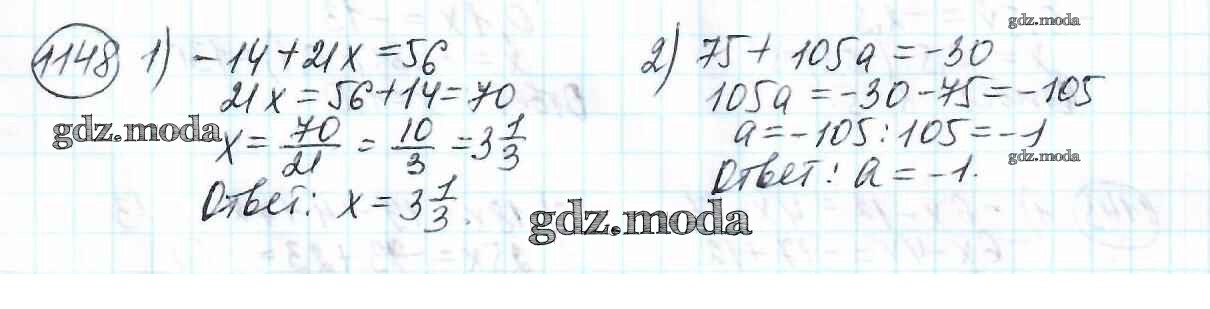 1148 1) -14+21x=56
21x=56+14=70
x=70/21=10/3=3 1/3
Ответ: x=3 1/3.
2) 75+105a=-30
105a=-30-75=-105
a=-105:105=-1
Ответ: a=-1.
gdz.moda
gdz.moda
gdz.moda
gdz.moda